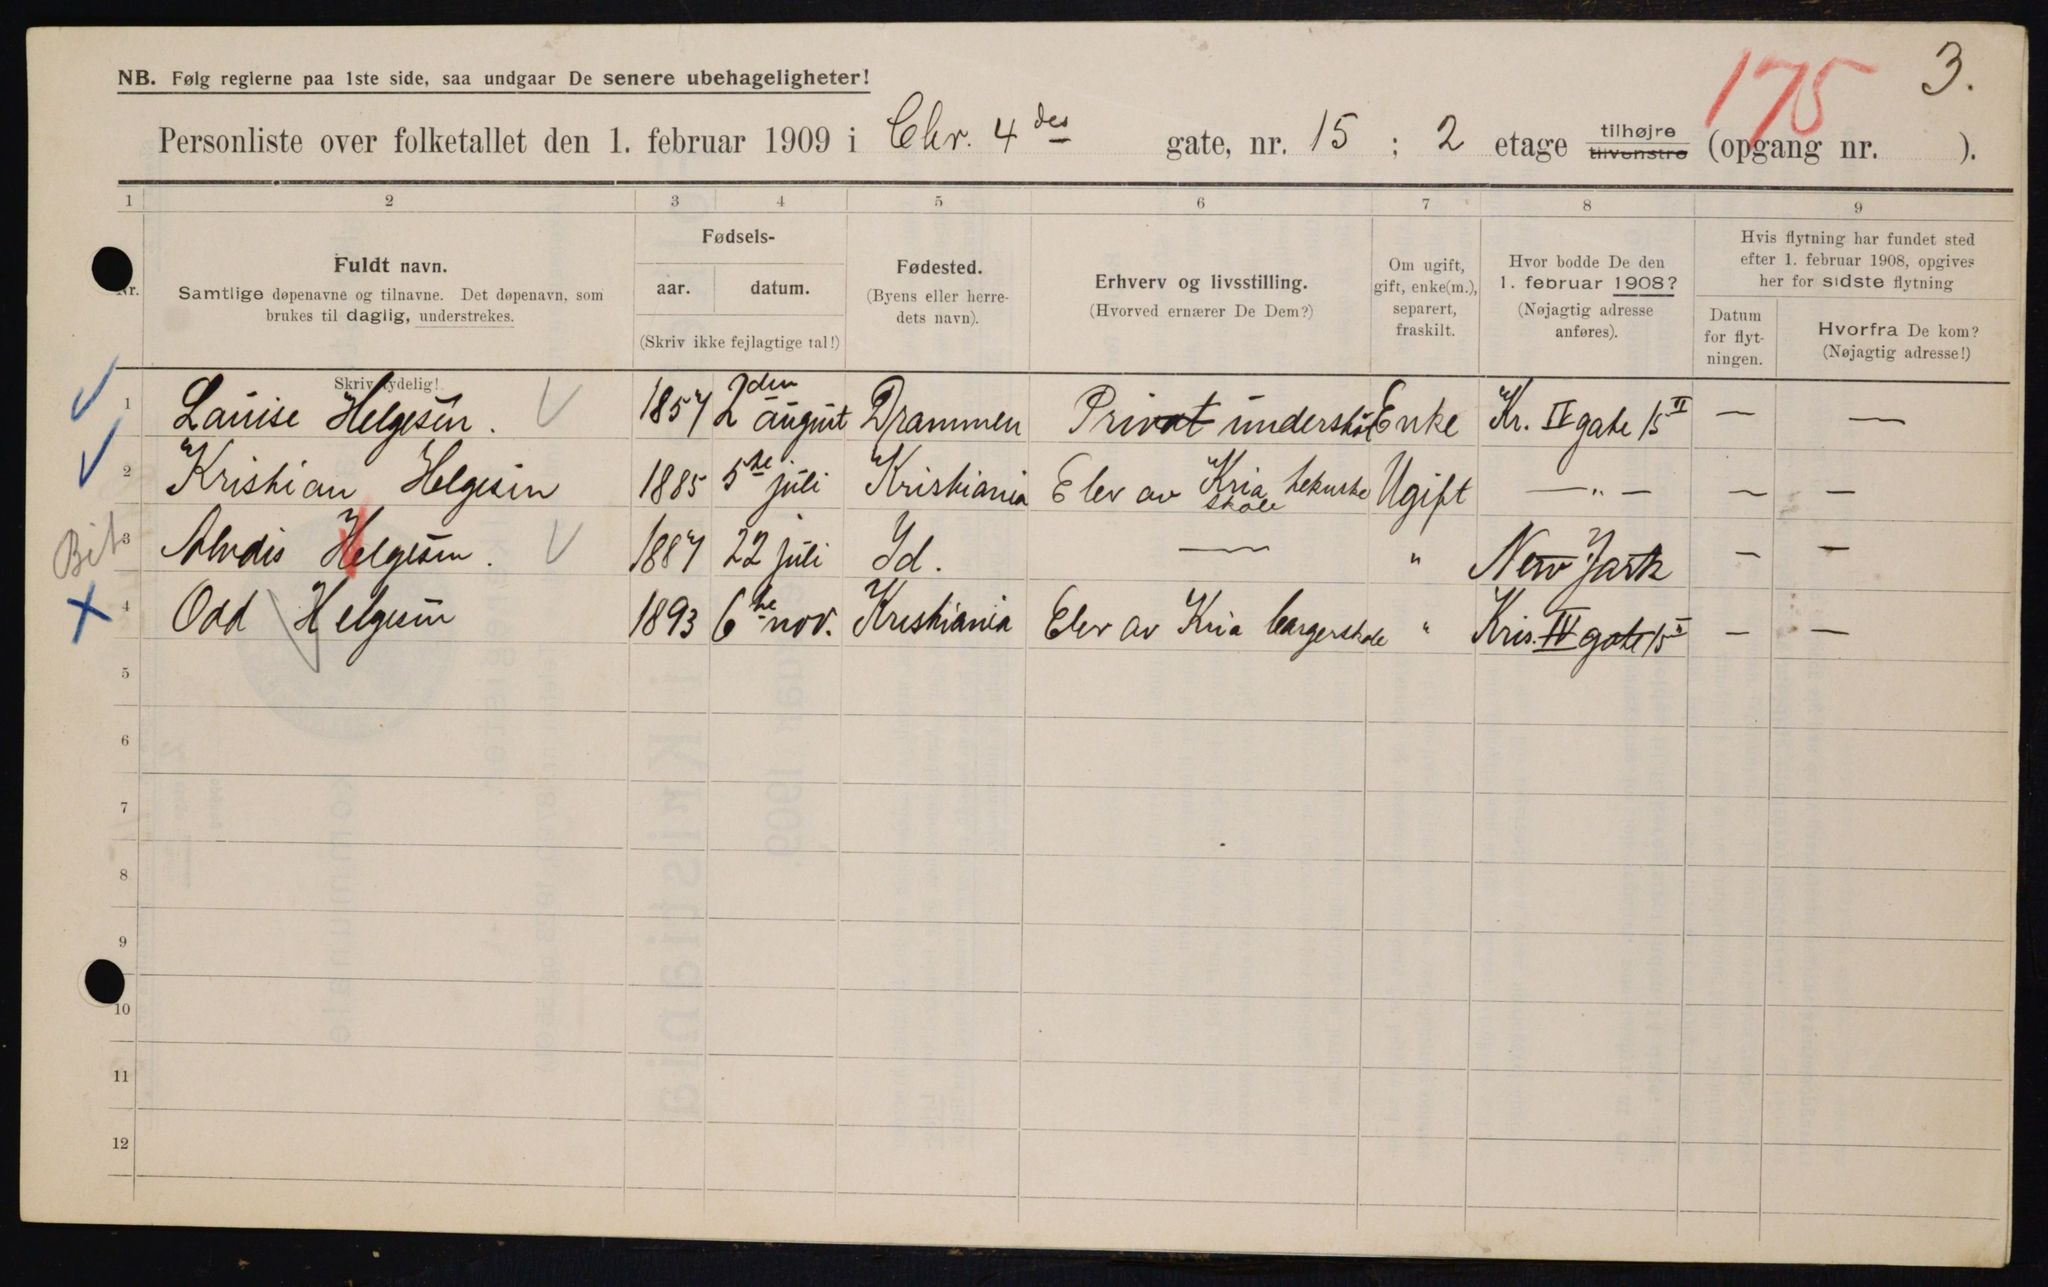 175
3.
NB. Følg reglerne paa 1ste side, saa undgaar De senere ubehageligheter!
Personliste over folketallet den 1. februar 1909 i Chr. 4 des gate, nr. 15 ; 2 etage tilhøjre tilvenstre (opgang nr. ).
1 2 3 4 5 6 7 8 9
Nr.
Fuldt navn.
Samtlige døpenavne og tilnavne. Det døpenavn, som
brukes til daglig, understrekes.
Skriv tydelig!
Fødsels-
aar. datum.
(Skriv ikke fejlagtige tal!)
Fødested.
(Byens eller herre-
dets navn).
Erhverv og livsstilling.
(Hvorved ernærer De Dem?)
Om ugift,
gift, enke(m.),
separert,
fraskilt.
Hvor bodde De den
1. februar 1908?
(Nøjagtig adresse
anføres).
Hvis flytning har fundet sted
efter 1. februar 1908, opgives
her for sidste flytning
Datum
for flyt-
ningen.
Hvorfra De kom?
(Nøjagtig adresse!)
1 Louise Helgesen. 1857 2den august Drammen Privat Enke Kr. IV gate 15 II — —
2 Kristian Helgesen 1885 5te juli Kristiania Elev av Kria tekniske skole Ugift —„— — —
3 Helgesen. 1887 22 juli Id. — " New York — —
4 Odd Helgesen 1893 6te nov. Kristiania Elev av Kria borgerskole " Kris. IV gate 15 — —
5
6
7
8
9
10
11
12